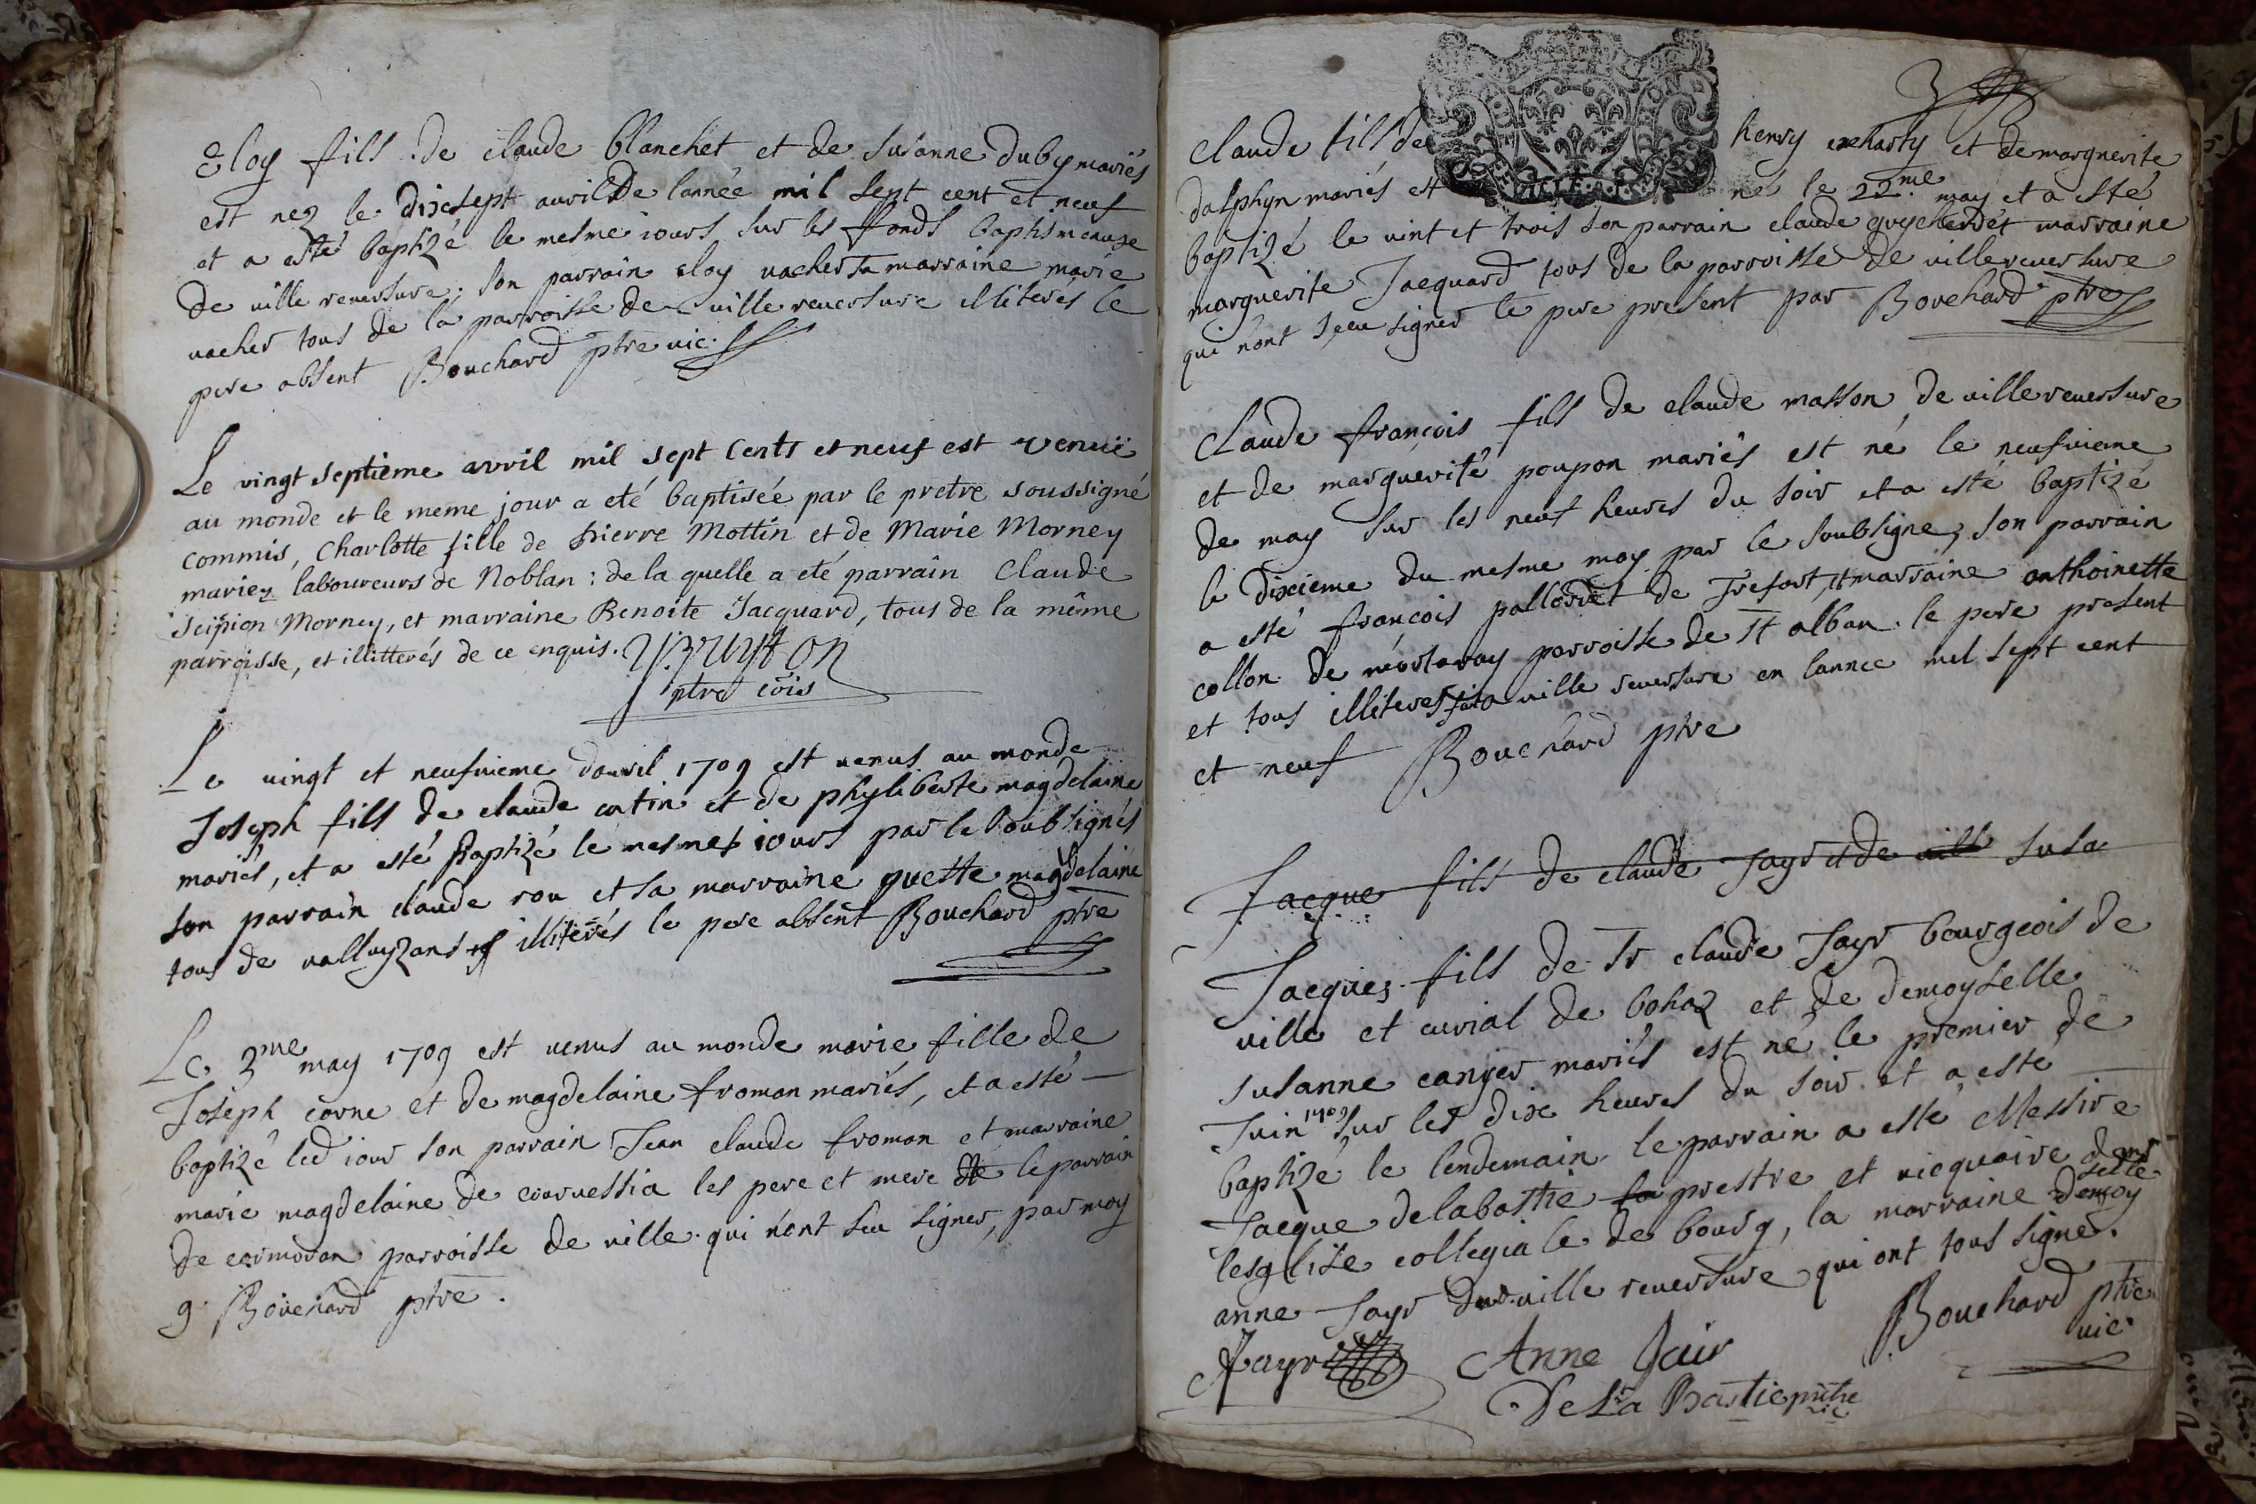 Eloy fils de claude blanchet et de susanne duby mariés
est nez le dixsept avril de lannée mil sept cent et neuf
et a esté baptizé le mesme iours sur les fonds baptismeaux
de ville reuersure, son parrain eloy vacher sa marraine marie
vacher tous de la parroisse de ville reuersure illiterés le
pere absent Bouchard ptre vic.
Le vingt septieme avril mil sept Cents et neuf est venuë
au monde et le meme jour a eté baptisée par le pretre soussigné
commis, Charlotte fille de Pierre Mottin et de Marie Morney
mariez laboureurs de Noblan : de la quelle a eté parrain Claude
Scipion Morney, et marraine Benoite Jacquard, tous de la même
parroisse, et illitterés de ce enquis.
ptre cõis
Le vingt et neufuieme d'auvril 1709 est venus au monde
Joseph fills de claude cottin et de phyliberte magdelaine
mariés, et a esté Baptizé le mesme iours par le soubsignés
son parrain claude rou et sa marraine guette magdelaine
tous de valluyzant illiterés le pere absent Bouchard ptre
Le 3me may 1709 est venus au monde marie fille de
Joseph corne et de magdelaine froman mariés, et a esté
baptizé led iour son parrain Jean claude froman et marraine
marie magdelaine de courvessia les pere et mere le parrain
de cormoran parroisse de ville qui n'ont seu signer, par moy
g. Bouchard ptre.
Claude fills de henry excharty et de marguerite
dalphyn mariés est né le 22.me may et a esté
baptizé le vint et trois son parrain claude et marraine
marguerite Jacquard tous de la parroisse de villereuersure
qui n'ont sceu signer le pere present par Bouchard ptre
Claude françois fills de claude masson de villereuersure
et de marguerite poupon mariés est né le neufuieme
de may sur les neuf heures du soir et a esté baptizé
le dixieme du mesme moy par le soubsigne, son parrain
a esté françois palloriet de Trefort, et marraine anthoinette
collon de mortaray parroisse de St alban. le pere present
et tous illiteres fait a ville reuersure en lannee mil sept cent
et neuf Bouchard ptre
Jacque fills de claude Jayr et de ville susa
Jacques fills de Sr claude Jayr bourgeois de
ville et curial de bohaz et de demoyselle
susanne canyer mariés est né le premier de
Juin 1709 sur les dix heures du soir et a esté
baptizé le lendemain le parrain a esté Messire
Jacque delabastie prestre et vicquaire dans
lesglise collegiale de bourg, la marraine demoyselle
anne Jayr de ville reuersure qui ont tous signé.
Jayr Anne Jair Bouchard ptre
vic.
De La Bastie prêtre
vic